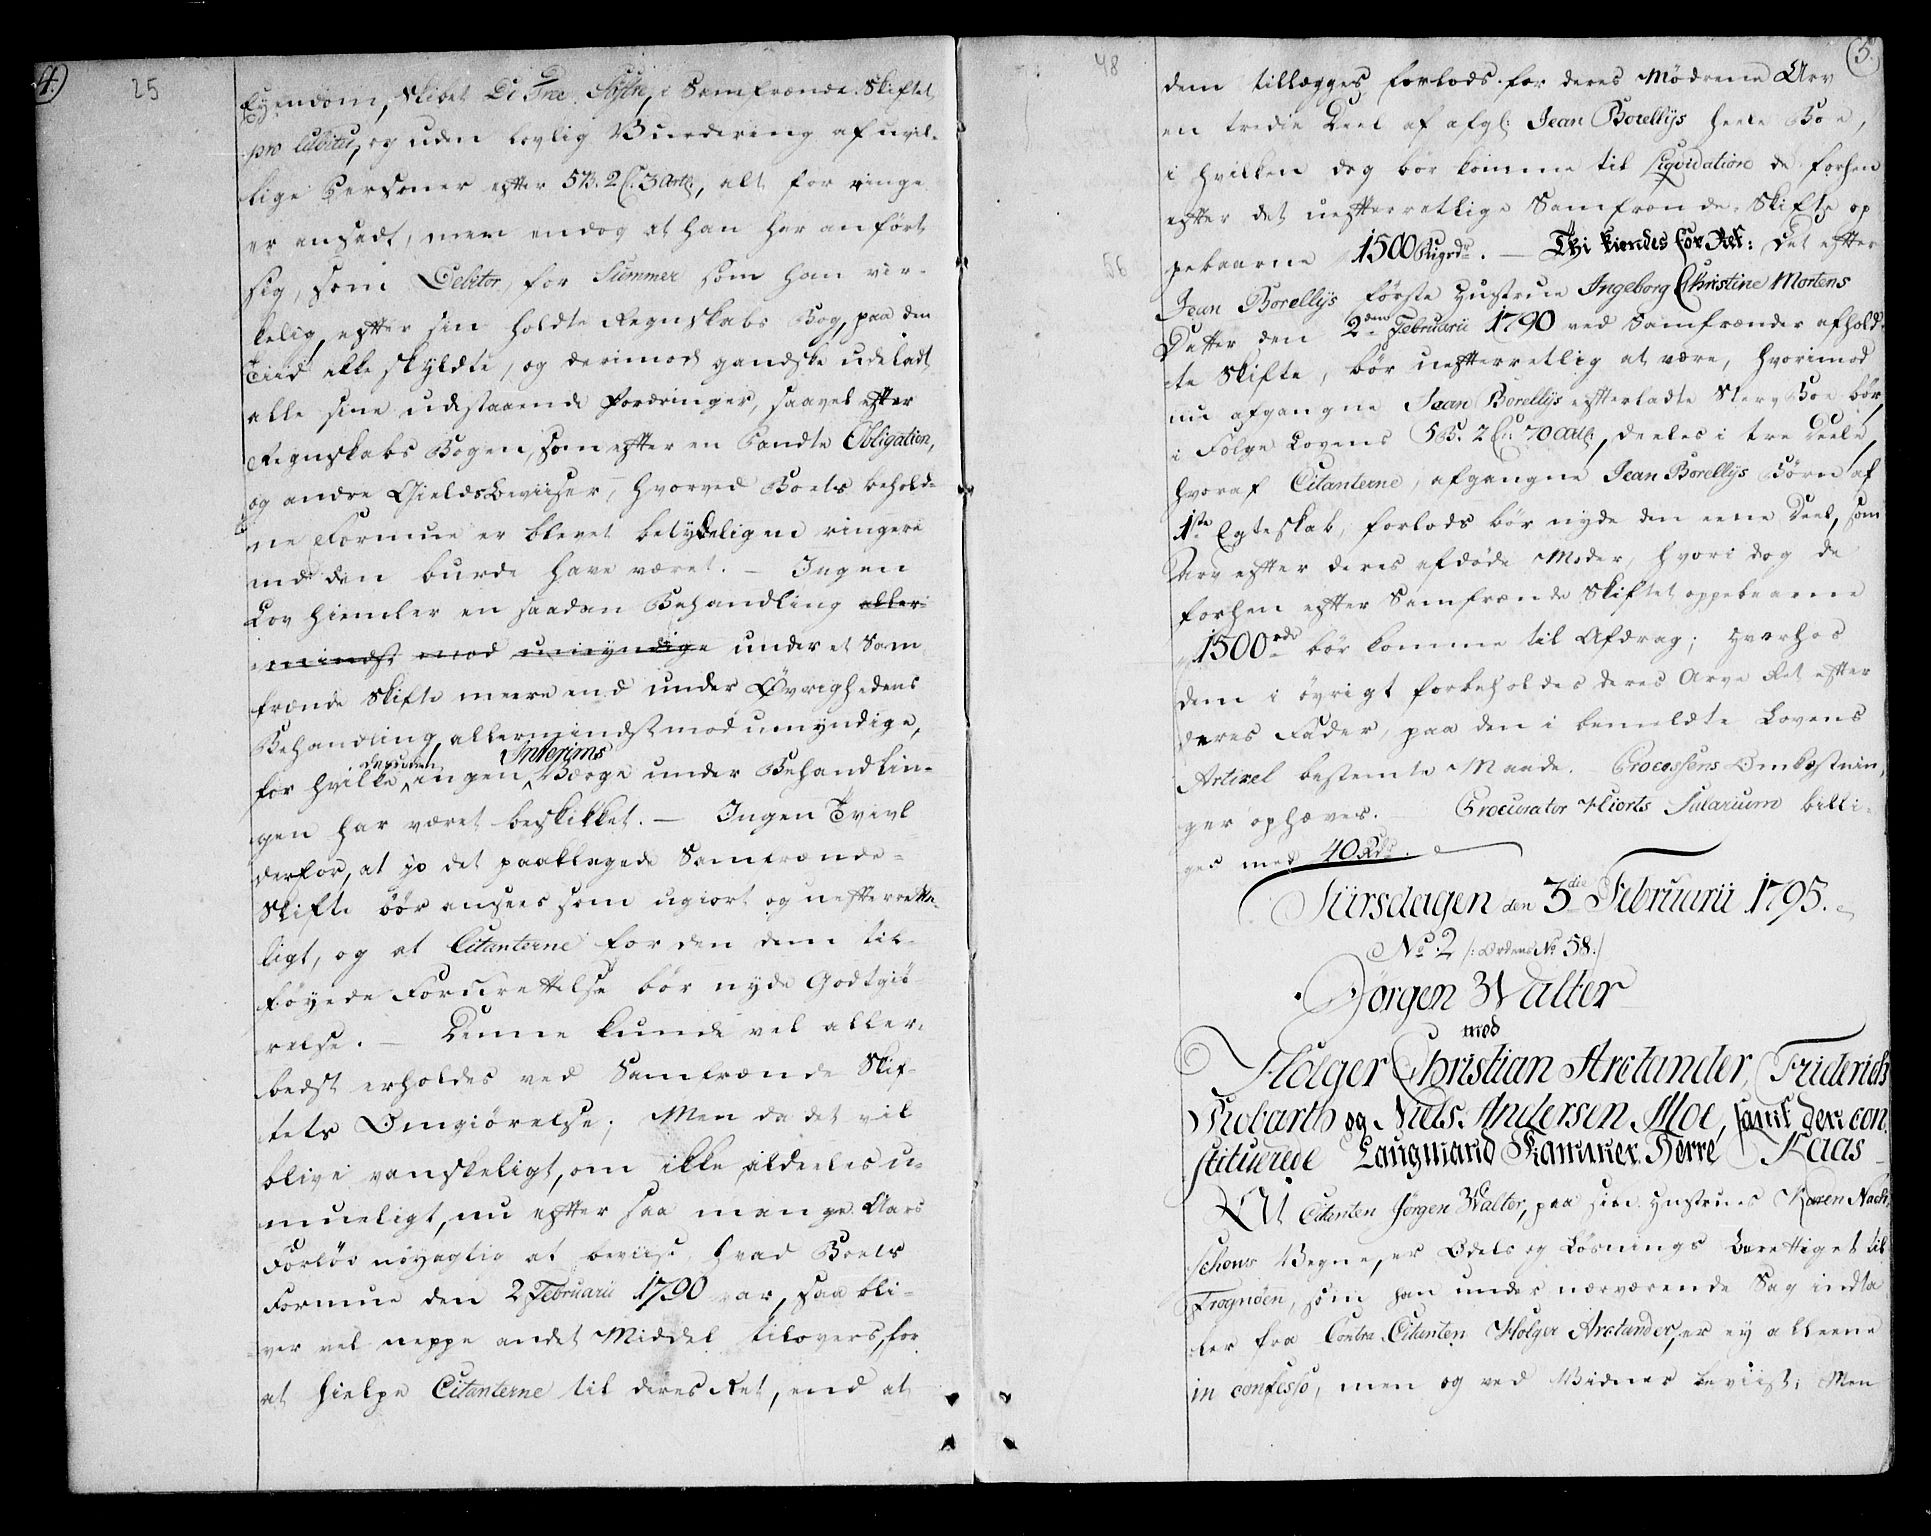 4.
25
Eyendom, Skibet De Tree Søstre, i Samfrænde-Skiftet
pro lubitu, og uden lovlig Vurdering af uvil-
lige Personer efter 5 B. 2 C. 3 Art:, alt for ringe
er ansadt, men endog at han har anført
sig, som Debitor, for Summer som han vir-
kelig, efter sin holdte Regnskabs Bog, paa den
Tiid ikke skyldte, og derimod gandske udeladt
alle sine udestaaende Fordringer, saavel efter
Regnskabs Bogen, som efter en Pandte Obligation,
og andre Gields Beviiser, hvorved Boets behold-
ne Formue er blevet betydeligen ringere
end den burde have været. – Ingen
Lov hiemler en saadan Behandling aller-
mindst mod umyndige under et Sam-
frænde Skifte meere end under Øvrighedens
Behandling, allermindst mod umyndige,
desuden Interims
for hvilke ingen Værge under Behandlin-
gen har været beskikket. – Ingen Tvivl
derfor, at jo det paaklagede Samfrænde-
Skifte bør ansees som ugiort og uefterrette-
ligt, og at Citanterne for den dem til-
føyede Forurettelse bør nyde Godtgiø-
relse. – Denne kunde vel aller-
bedst erholdes ved Samfrænde Skif-
tets Omgiørelse; Men da det vil
blive vanskeligt, om ikke aldeeles u-
mueligt, nu efter saa mange Aars
Forløb nøyagtig at beviise hvad Boets
Formue den 2 Februarii 1790 var, saa bli-
ver vel neppe andet Middel tilovers, for
at hielpe Citanterne til deres Ret, end at
5.
48
dem tillægges forlods for deres Mødrene Arv
en tredie Deel af afgl: Jean Borellys heele Boe,
i hvilken dog bør komme til Liqvidation de forhen
efter det uefterretlige Samfrænde-Skifte op-
56
pebaarne 1500 Rigsdr. – Thi kiendes for Ret: Det efter
Jean Borellys første Hustrue Ingeborg Christine Mortens
Datter den 2den Februarii 1790 ved Samfrænder afhold-
te Skifte, bør uefterretlig at være, hvorimod
nu afgangne Jean Borellys efterladte Sterv Boe bør,
i Følge Lovens 5 B. 2 C. 70 Art:, deeles i tre Deele,
hvoraf Citanterne, afgangne Jean Borellys Børn af
1ste Egteskab, forlods bør nyde den eene Deel, som
Arv efter deres afdøde Moder, hvori dog de
forhen efter Samfrænde Skiftet oppebaarne
1500 rdr bør komme til Afdrag; hvorhos
dem i øvrigt forbeholdes deres Arve Ret efter
deres Fader, paa den i bemeldte Lovens
Artikel bestemte Maade. – Processens Omkostnin-
ger ophæves. – Procurator Hiorts Salarium billi-
ges med 40 Rdr.
Tiirsdagen den 3die Februarii 1795.
No. 2 /: Ordens No 58:/
Jørgen Walter
mod
Holger Christian Arctander, Friderich
og Niels Andersen Moe, samt den con-
stituerede Laugmand Kammer-Herre Kaas
At Citanten Jørgen Walter, paa sin Hustrues Karen Nach-
schous Vegne, er Odels og Løsnings berettiget til
Frognøen, som han under nærværende Sag indta-
ler fra Contra Citanten Holger Arctander, er ey alleene
in confesso, men og ved Vidner beviist; Men